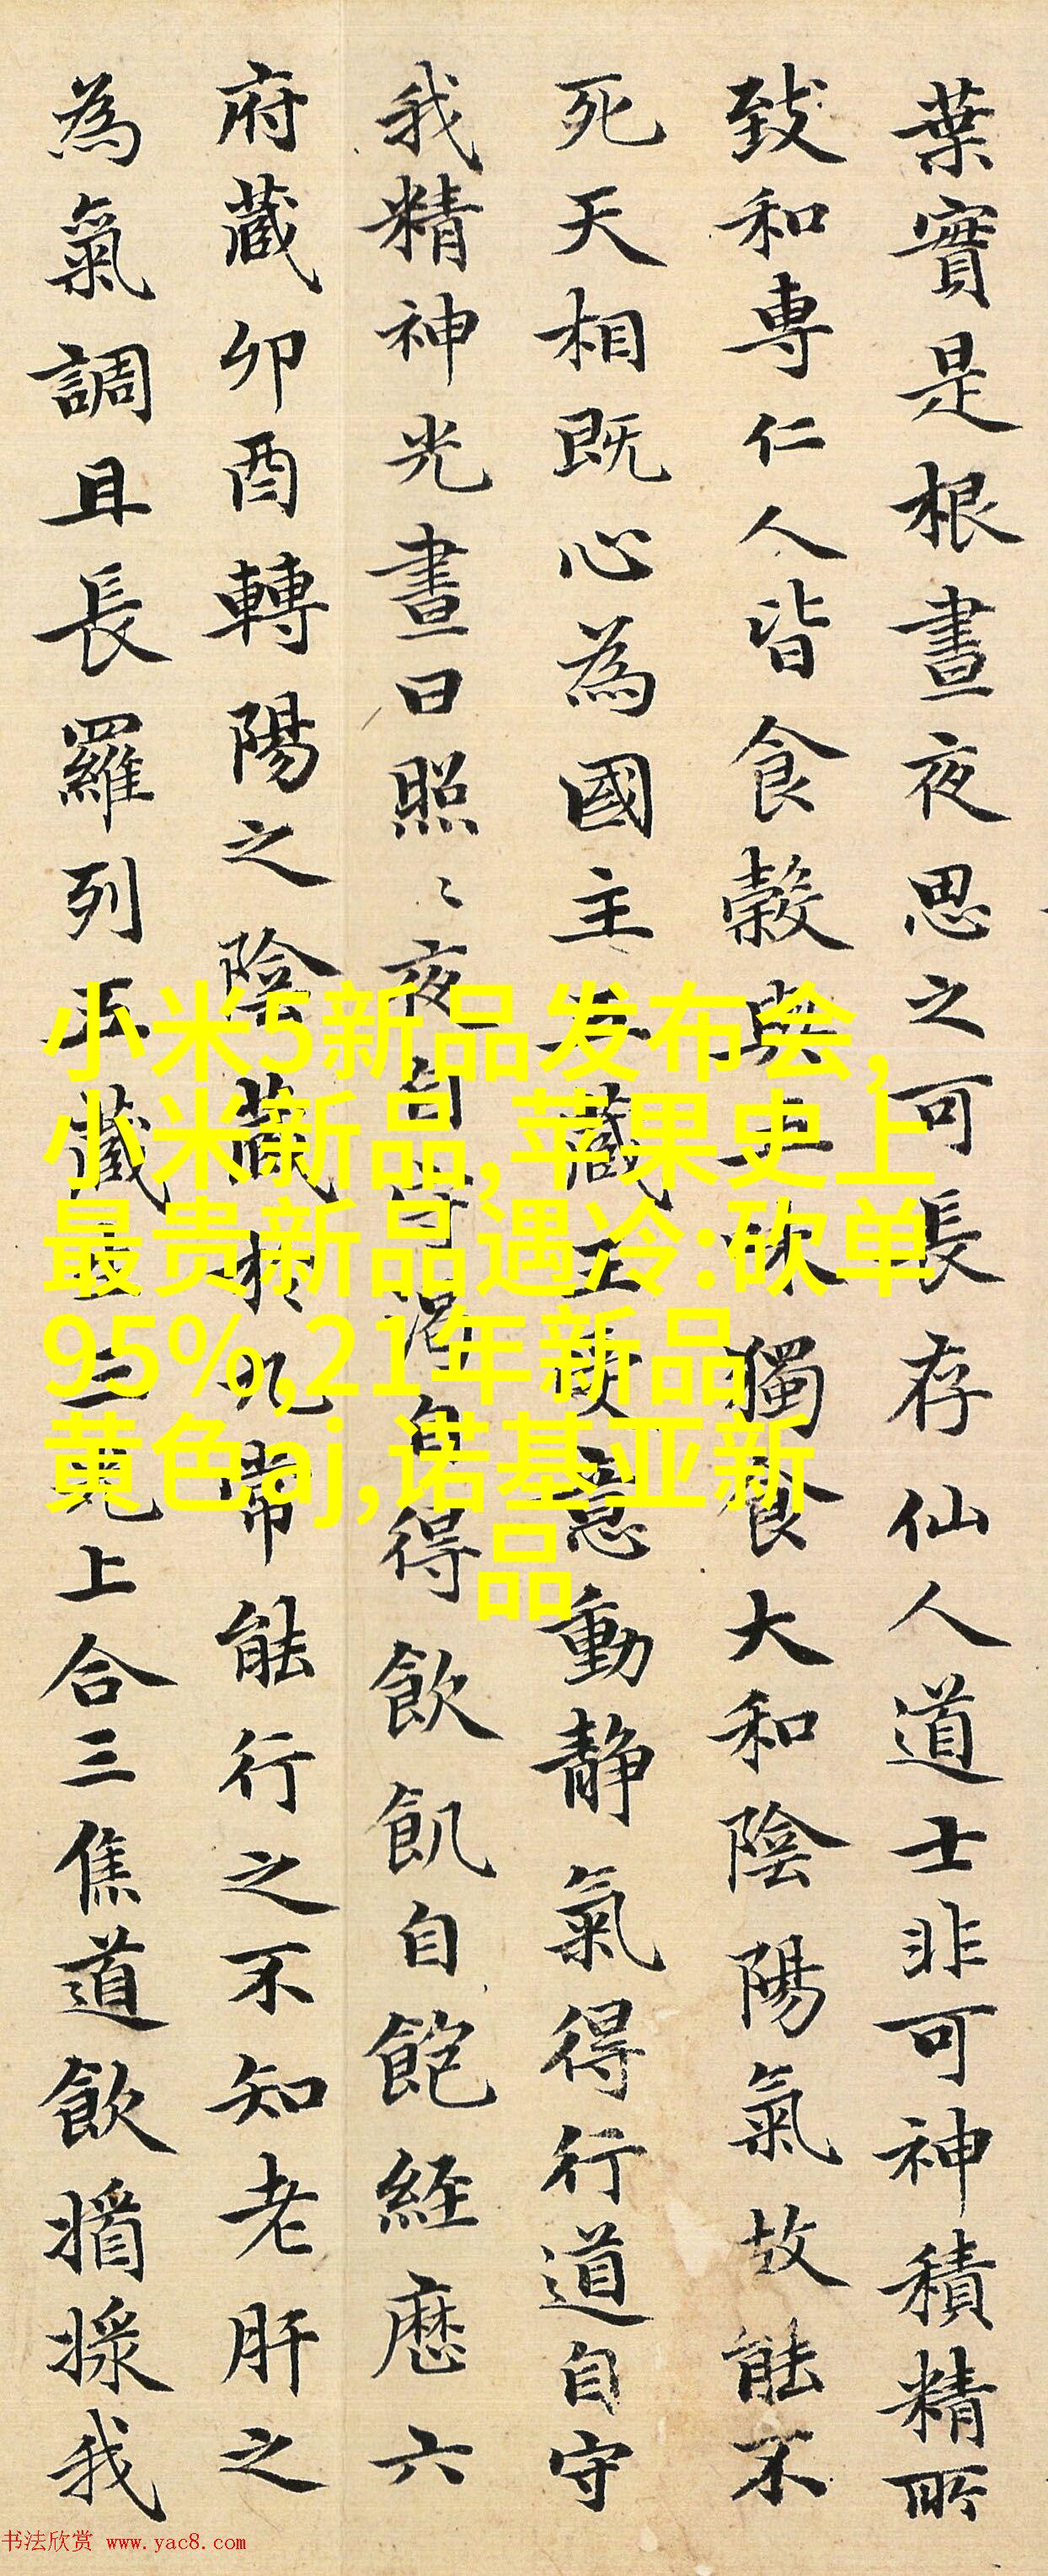 葉實是根晝夜思之可長存仙人道士非可神積精所
致和専仁人皆食榖與五味獨食大和陰陽氣故能不
死天相既心為國主五藏王受意動静氣得行道自守
我精神光晝日照〻夜自守渴自得飲飢自飽経歷六
府藏卯酉轉陽之陰藏於九常能行之不知老肝之
為氣調且長羅列五藏生三光上合三焦道飲漿我
小米5新品发布会,
小米新品,苹果史上
最贵新品遇冷:砍单
95%,21年新品
黄色aj,诺基亚新
品
书法欣赏 www.yac8.com